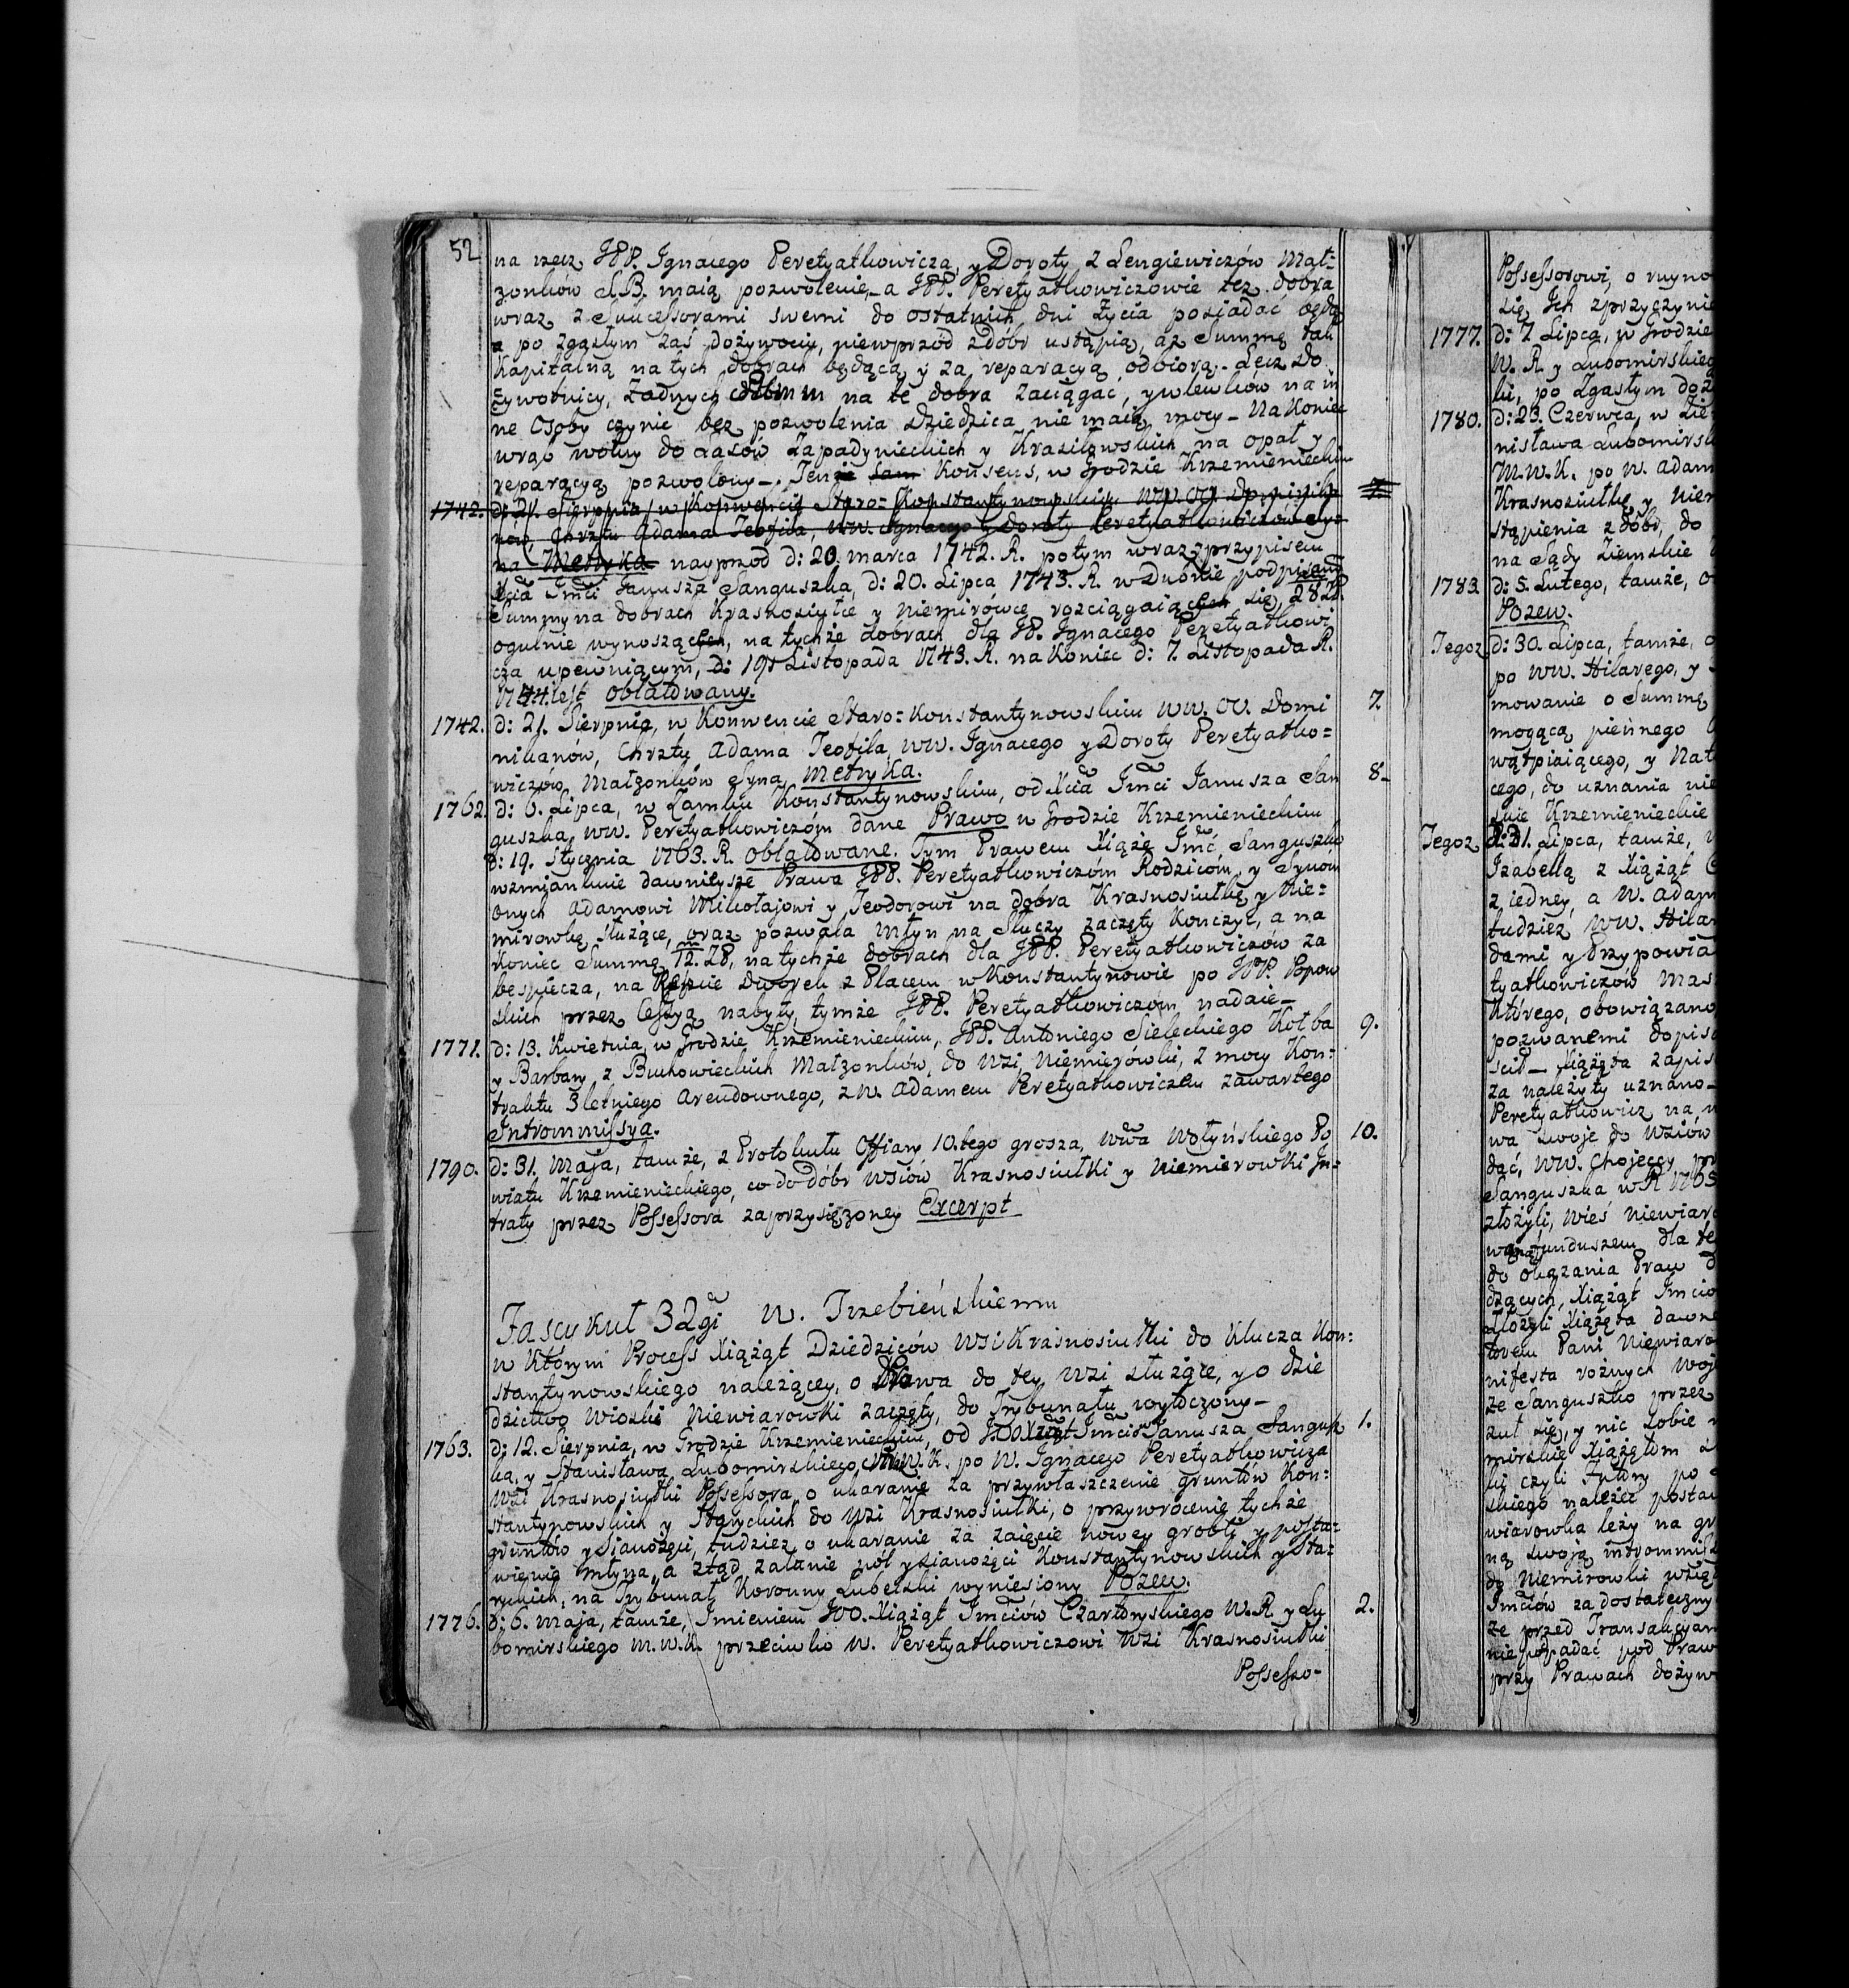 52
na rzecz JPP. Ignacego Peretyatkowicza, y Doroty z Lengiewiczów Mał=
zonków S.B. maią pozwolenie,_ a JPP. Peretyatkowiczowie też dobra
wraz z Sukcessorami swemi do ostatnich dni życia posiadać będą
a po zgasłym zaś dożywociu, niewprzód z dóbr ustąpią, aż Summę tak
Kapitalną na tych dobrach będącą, y za reparacyą odbiorą._ Lecz Do
żywotnicy, Żadnych Summ na te dobra zaciągać, y wlewków na in
ne Osoby czynic bez pozwolenia Dziedzica nie maią mocy_ Na Koniec
wrąb wolny do Lasów Zapadynieckich y Krasiłowskich na opał y
reparacyą pozwolony_. Tenże sam Konsens, w Grodzie Krzemienieckim
1742. d: 21. Sierpnia, w Konwencie Staro=Konstantynowskim WW. OO. Dominika 7.
nów, Chrztu Adama Teofila, WW. Ignacego y Doroty Peretyatkowiczów Sy=
na Metryka nayprzod d: 20. marca 1742. R. potym wraz z przypisem
Xcia Jmci Janusza Sanguszka, d: 20. Lipca 1743. R. w Dubnie podpisanym
Summy na dobrach Krasnosiułce y Niemirówce rozciągaiących się, 28
ogulnie wynoszących, na tychże dobrach dla JP. Ignacego Peretyatkowi
cza upewniącym, d: 19. Listopada 1743. R. na Koniec d: 7. Listopada R.
1744. iest oblatowany.
1742. d: 21. Sierpnia, w Konwencie Staro=Konstantynowskim WW. OO. Domi 7.
nikanów, Chrztu Adama Teofila, WW. Ignacego y Doroty Peretyatko=
wiczów Małzonków Syna, Metryka.
1762. d: 6. Lipca, w Zamku Konstantynowskim, od Xcia Jmci Janusza San 8_
guszka, WW. Peretyatkowiczóm dane Prawo w Grodzie Krzemienieckim
d: 19. Stycznia 1763. R. oblatowane. Tym Prawem Xiąże Jmć Sanguszko
wzmiankuie dawnieysze Prawa JPP. Peretyatkowiczóm Rodzicóm, y Synom
onych Adamowi Mikołajowi y Teodorowi na dobra Krasnosiułkę y Nie=
mirowkę służące, oraz pozwala młyn na Słuczy zaczęty Kończyć, a na
Koniec Summę 28, na tychże dobrach dla JPP. Peretyatkowiczów za
bespiecza, na Dworek z Placem w Konstantynowie po JPP. Popow
skich przez Cessyą nabyty, tymże JPP. Peretyatkowiczóm nadaie_
1771. d: 13. Kwietnia, w Grodzie Krzemienieckim, JPP. Antoniego Sieleckiego Kołba 9.
y Barbary z Bukowieckich Małzonków, do Wsi Niemierówki, z mocy Kon=
traktu 3letniego Arendownego, z W. Adamem Peretyatkowiczem zawartego
Intrommissya.
1790. d: 31. Maja, tamże, z Protokułu Offiary 10.tego grosza, Wwa Wołyńskiego Po 10.
wiatu Krzemienieckiego, co do dóbr Wsiów Krasnosiułki y Niemierowki In=
traty przez Possessora zaprzysiężoney Excerpt
Fascykuł 32gi W. Trzebieńskiemu
w Którym Process Xiążąt Dziedziców Wsi Krasnosiułki do Klucza Kon=
stantynowskiego należącey, o Prawa do tey Wsi służące, y o dzie
dzictwo Wioski Niewiarowki zaczęty, do Trybunału wytoczony_
1763. d: 12. Sierpnia, w Grodzie Krzemienieckim, od JOO. Xżąt Jmciów Janusza Sangusz 1.
ka, y Stanisława Lubomirskiego, po W. Ignacego Peretyatkowicza
Wsi Krasnosiułki Possessora, o ukaranie za przywłaszczenie gruntów Kon=
stantynowskich y Starych do Wsi Krasnosiułki, o przywrócenie tychże
gruntów y Sianożęci, tudzież o ukaranie za zaięcie nowey grobli y posta=
wienie młyna, a ztąd zalanie pól y sianożęci Konstantynowskich y Sta=
rych, na Trybunał Koronny Lubelski wyniesiony Pozew.
1776. d: 6. Maja, tamże, Imieniem JOO. Xiążąt Jmciów Czartoryskiego W.R. y Lu 2.
bomirskiego M.W.K. przeciwko W. Peretyatkowiczowi Wsi Krasnosiułki
Possesso-
Possessorowi, o ruyno
się Ich zprzyczynie
1777. d: 7. Lipca, w Grodzie
W. R. y Lubomirskieg
ki, po Zgasłym doż
1780. d: 23. Czerwca, w Zie
nisława Lubomirsk
M.W.K. po W. Adam
Krasnosiułkę y Nier
stąpienia z dóbr, do
na Sądy Ziemskie
1783. d: 5. Lutego, tamże, o
Pozew.
Tegoz d: 30. Lipca, tamże,
po WW. Hilarego, y
mowanie o Summę
mogącą pieńnego
wątpiącego, y Nat
cego, do uznania nie
skie Krzemienieckie
Tegoz d: 31. Lipca, tamże,
Izabellą z Xiążąt
z iedney, a W. Adam
tudzież WW. Hilar
dami y Przypowia
tyatkowiczów Mas
Którego, obowiązano
pozwanemi dopisa
scid_ Xiążęta zapis
za należyty uznano_
Peretyatkowicz na
wa swoje do Wsiów
dać, WW. Chojeccy
Sanguszka w R. 1763
złożyli, Wieś Niewiaro
funduszem dla te
do okazania Praw
dzących, Xiążąt Jmcio
złożyli Xiążęta dawne
torem Pani Niewiaro
nifesta rożnych Woje
że Sanguszko przez
zuł się, y nic sobie
mirskie Xiążętom
ki czyli Futory po
skiego należeć posta
wiarowka leży na gr
ną swoją intrommis
do Niemirowki wzię
Jmciów za dostateczny
że przed Transakcyam
nie podpadać pod Praw
przy Prawach dożyw